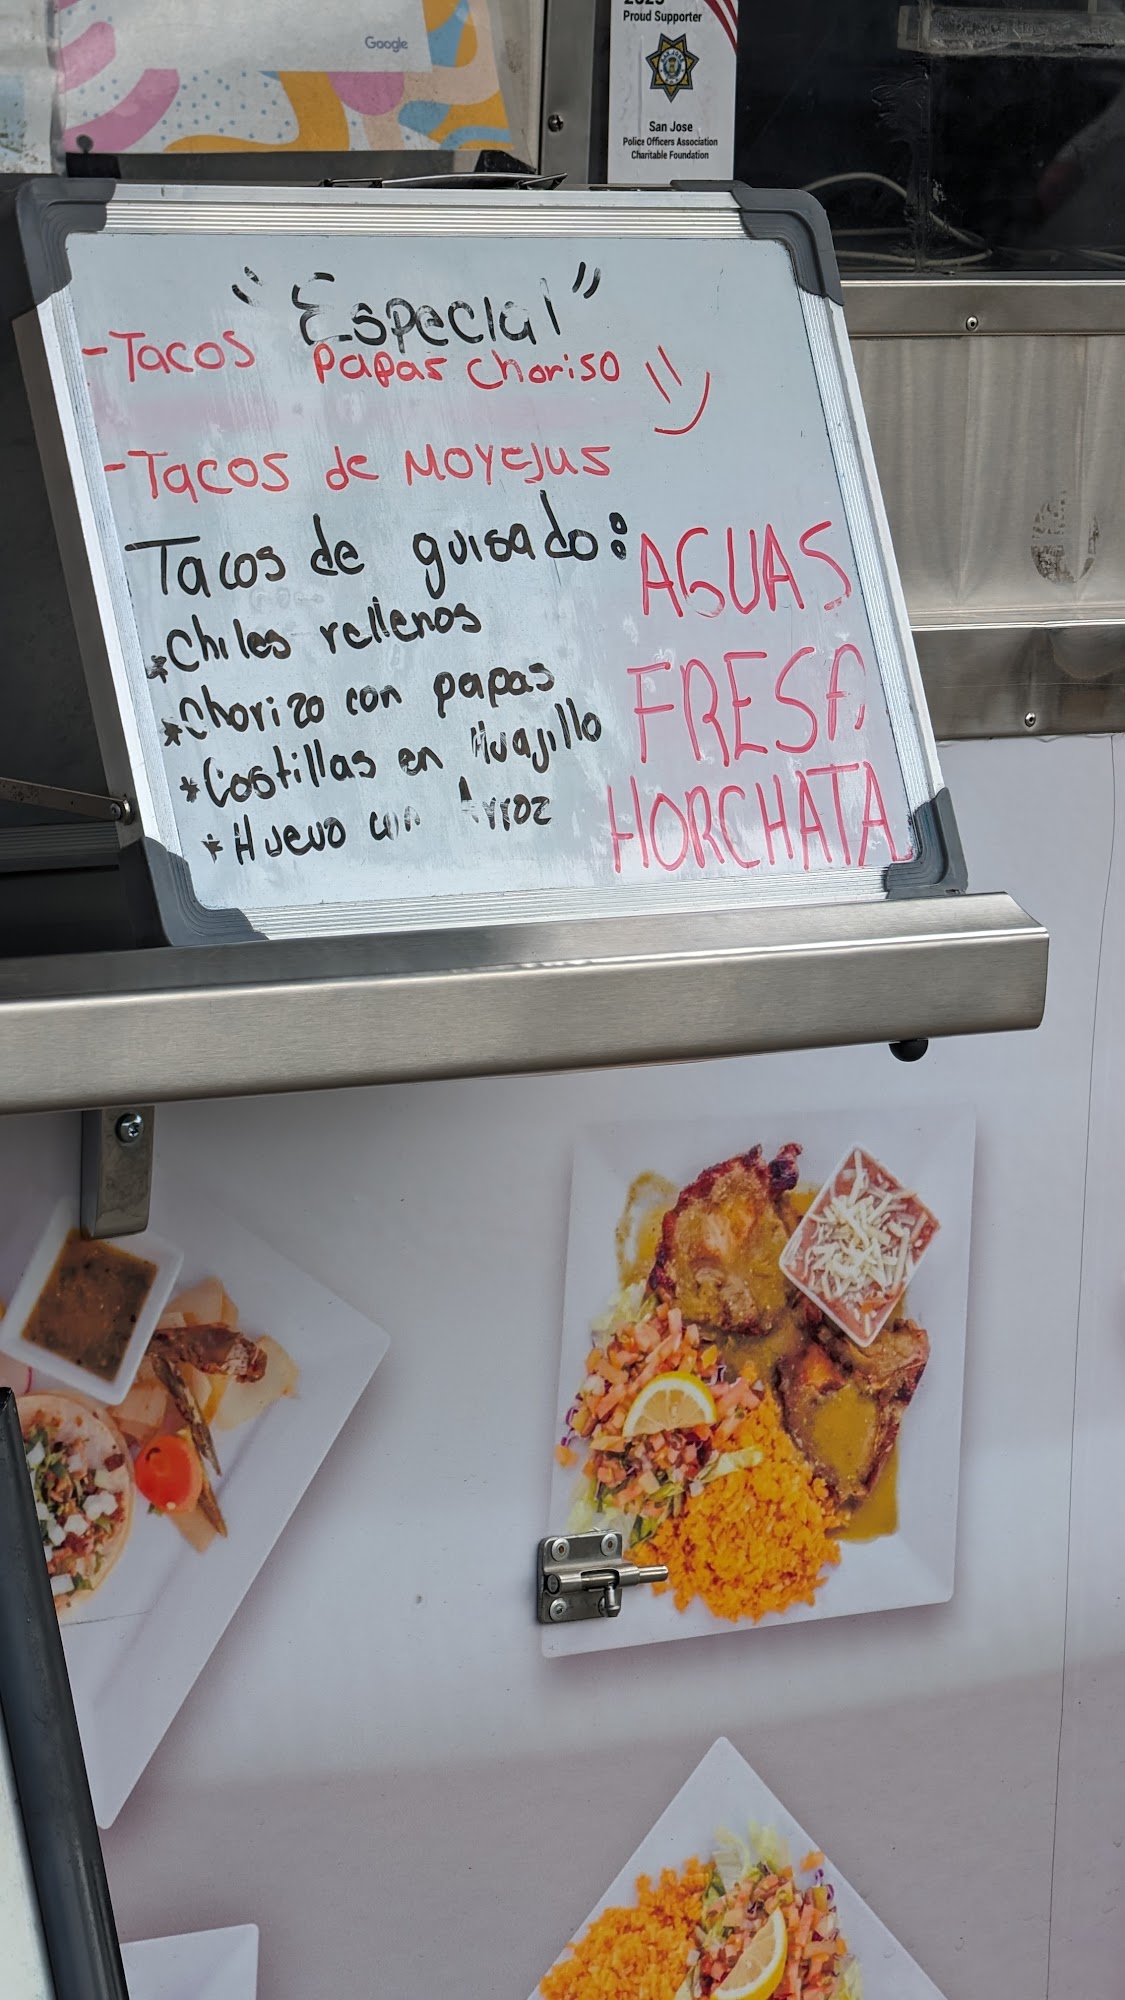 Google
2023
Proud Supporter
San Jose
Police Officers Association
Charitable Foundation
"Especial"
-Tacos papas choriso
-Tacos de Moyejus
Tacos de guisado:
*Chiles rellenos
*Chorizo con papas
*Costillas en Huajillo
*Huevo con Arroz
AGUAS
FRESA
HORCHATA